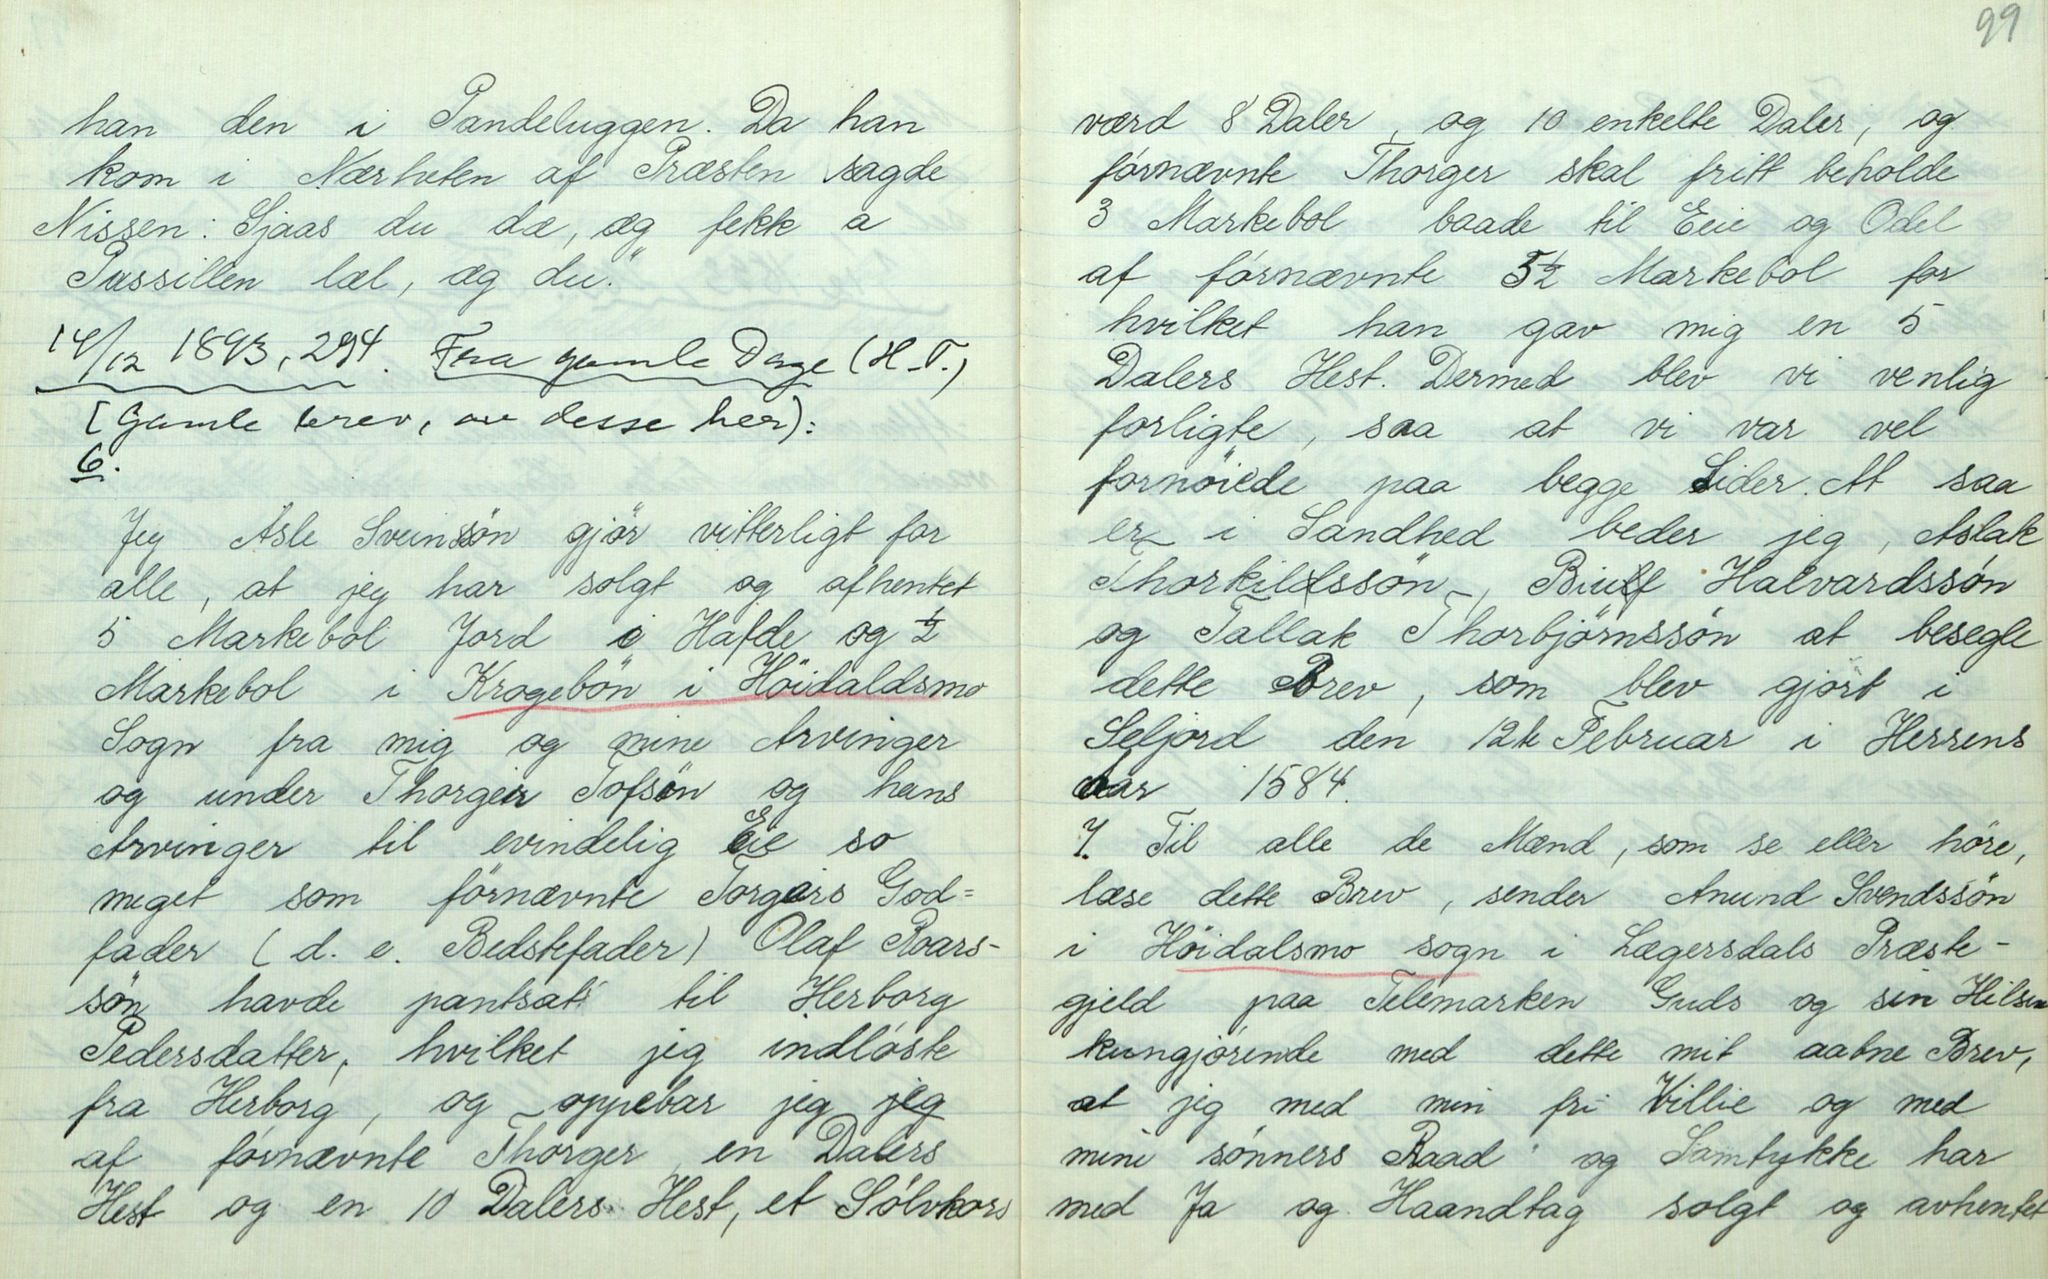 han den i Pandeluggen. Da han
kom i Nærheten af Præsten sagde
Nissen: Sjaas du dæ, æg fekk a
Pussillen læl, æg du."
14/12 1893, 294. Fraa gamle Dage (H.T.)
[Gamle brev, av desse her):
6.
Jeg Asle Sveinssön gjör vitterligt for
alle, at jeg har solgt og afhentet
5 Markebol Jord i Hafde og ½
Markebol i Krogebön i Höidaldsmo
Sogn fra mig og mine Arvinger
og under Thorgeir Tofsön og hans
Arvinger til evindelig Eie so
meget som förnævnte Torgeirs God=
fader (d. e. Bedstefader) Olaf Roars-
sön havde pantsat til Herborg
Pedersdatter, hvilket jeg indlöste
fra Herborg, og oppebar jeg jeg
af förnævnte Thorger en Dalers
Hest og en 10 Dalers Hest, et Sölvkors
99
værd 8 Daler, og 10 enkelte Daler, og
förnævnte Thorger skal fritt beholde
3 Markebol baade til Eeie og Odel
af förnævnte 5½ Markebol for
hvilket han gav mig en 5
Dalers Hest. Dermed blev vi venlig
forligte, saa at vi var vel
fornöiede paa begge Sider. At saa
er i Sandhed beder jeg, Aslak
Thorkilssön, Biulf Halvardssön
og Tallak Thorbjörnssön at besegle
dette Brev, som blev gjört i
Seljord den 12te Februar i Herrens
Aar 1584.
7. Til alle de Mænd, som se eller höre,
læse dette Brev, sender Anund Svendssön
i Höidalsmo sogn i Lægersdals Præste-
gjeld paa Telemarken Guds og sin Hilsen
kungjörende med dette mit aabne Brev,
at jeg med min fri Villie og med
mine sönners Raad og Samtykke har
med Ja og Haandtag solgt og avhentet